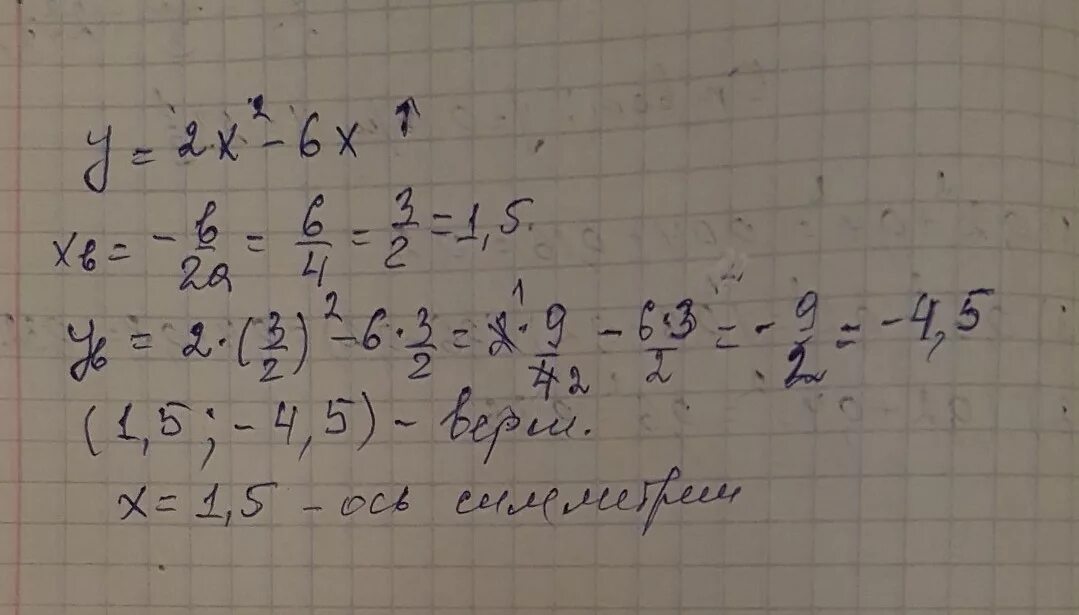 y = 2x² - 6x ↑
xв = - в/2a = 6/4 = 3/2 = 1,5.
yв = 2·(3/2)² - 6·3/2 = 2̶¹·9/4̶2 - 6·3/2 = - 9/2 = -4,5
(1,5; -4,5) - верш.
x = 1,5 - ось симметрии